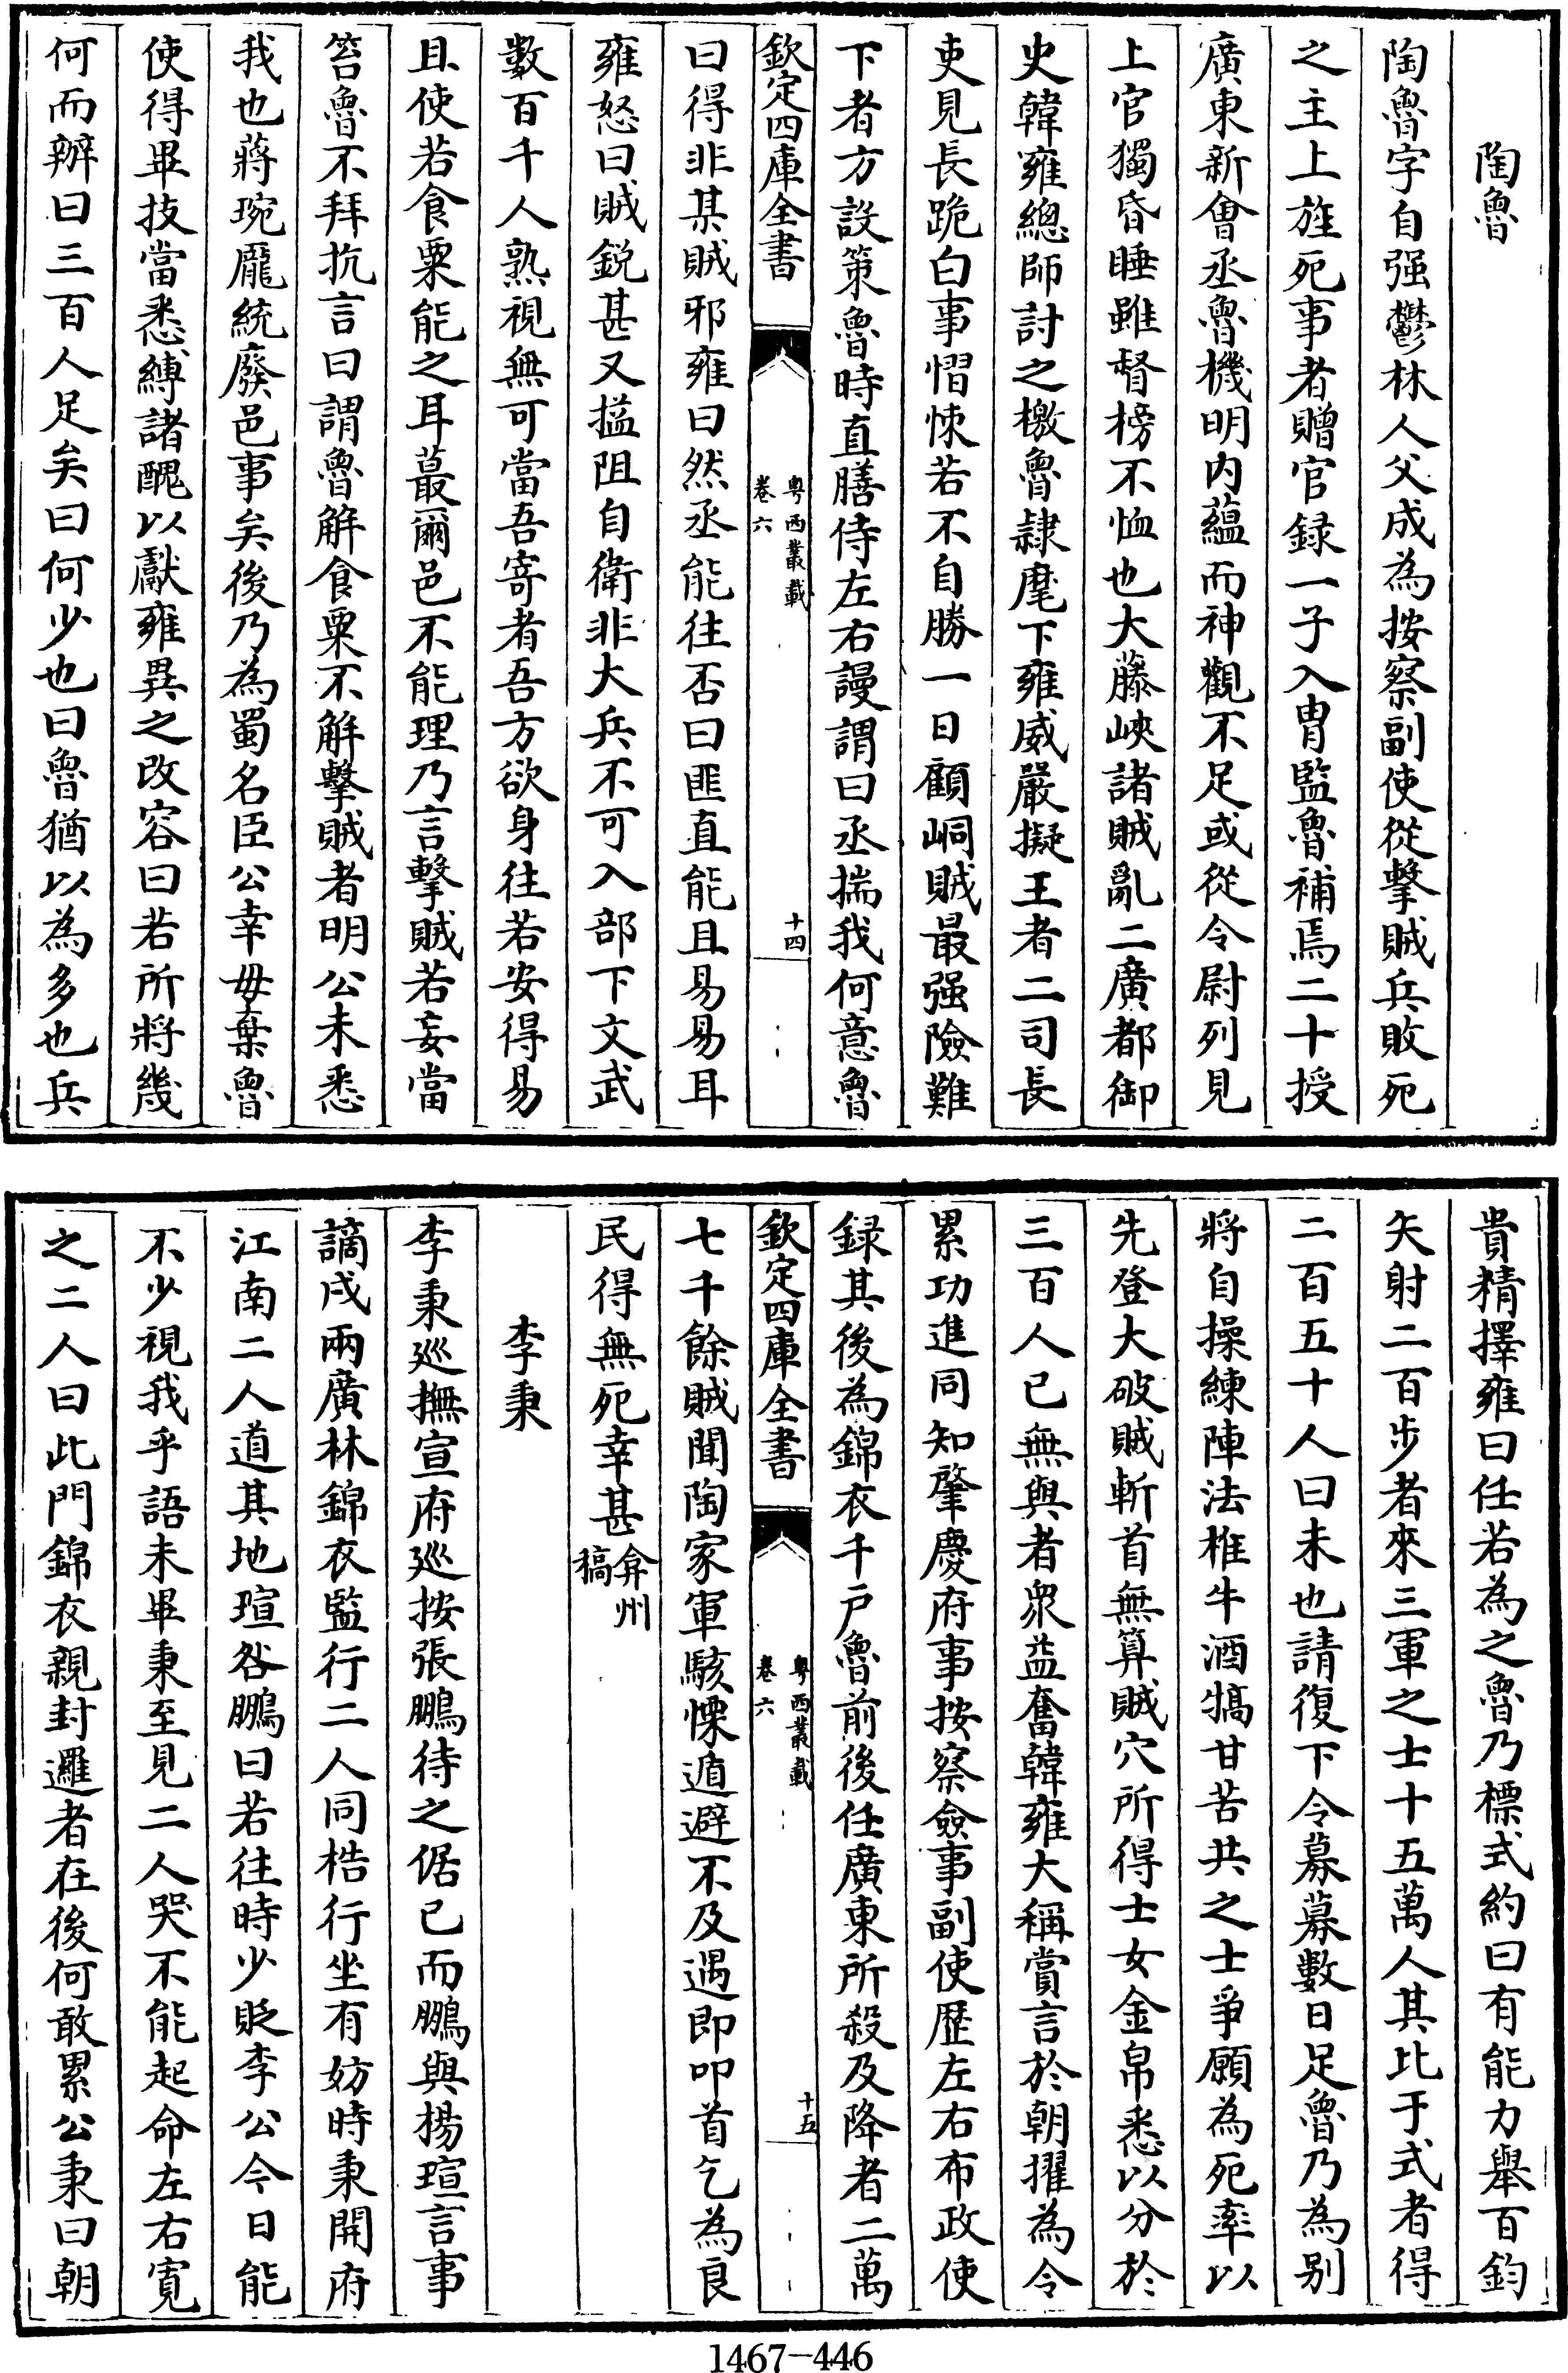 陶魯
陶魯字自强鬱林人父成為按察副使從擊賊兵敗死
之主上旌死事者贈官録一子入胄監魯補焉二十授
廣東新會丞魯機明内蘊而神觀不足或從令尉列見
上官獨昏睡雖督榜不恤也大藤峽諸賊亂二廣都御
史韓雍總師討之檄魯隷麾下雍威嚴擬王者二司長
吏見長跪白事慴悚若不自勝一日顧峒賊最强險難
下者方設策魯時直膳侍左右謾謂曰丞揣我何意魯
欽定四庫全書
粤西叢載
卷六
十四
曰得非某賊邪雍曰然丞能往否曰匪直能且易易耳
雍怒曰賊鋭甚又搤阻自衛非大兵不可入部下文武
數百千人熟視無可當吾寄者吾方欲身往若安得易
且使若食粟能之耳蕞爾邑不能理乃言擊賊若妄當
笞魯不拜抗言曰謂魯解食粟不解擊賊者明公未悉
我也蔣琬龎統廢邑事矣後乃為蜀名臣公幸毋棄魯
使得畢技當悉縛諸醜以獻雍異之改容曰若所將幾
何而辨曰三百人足矣曰何少也曰魯猶以為多也兵
貴精擇雍曰任若為之魯乃標式約曰有能力舉百鈞
矢射二百步者來三軍之士十五萬人其比于式者得
二百五十人曰未也請復下令募募數日足魯乃為别
將自操練陣法椎牛酒犒甘苦共之士爭願為死率以
先登大破賊斬首無算賊穴所得士女金帛悉以分於
三百人已無與者衆益奮韓雍大稱賞言於朝擢為令
累功進同知肇慶府事按察僉事副使歴左右布政使
録其後為錦衣千户魯前後任廣東所殺及降者二萬
欽定四庫全書
粤西叢載
卷六
十五
七千餘賊聞陶家軍駭慄遁避不及遇即叩首乞為良
民得無死幸甚弇州稿
李秉
李秉巡撫宣府巡按張鵬待之倨已而鵬與楊瑄言事
謫戌兩廣林錦衣監行二人同梏行坐有妨時秉開府
江南二人道其地瑄咎鵬曰若往時少貶李公今日能
不少視我乎語未畢秉至見二人哭不能起命左右寛
之二人曰此門錦衣親封邏者在後何敢累公秉曰朝
1467-446